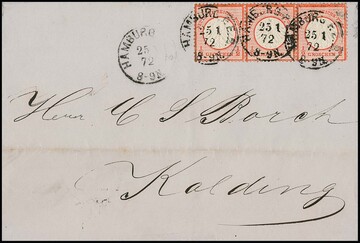 HAMBURG
25 1
72
8-9N.
HAMBURG
25 1
72
HAMBURG
25 1
72
8-9N.
HAMBURG
25 1
72
8-9N.
GROSCHEN
Herrn C S Borch
Kolding